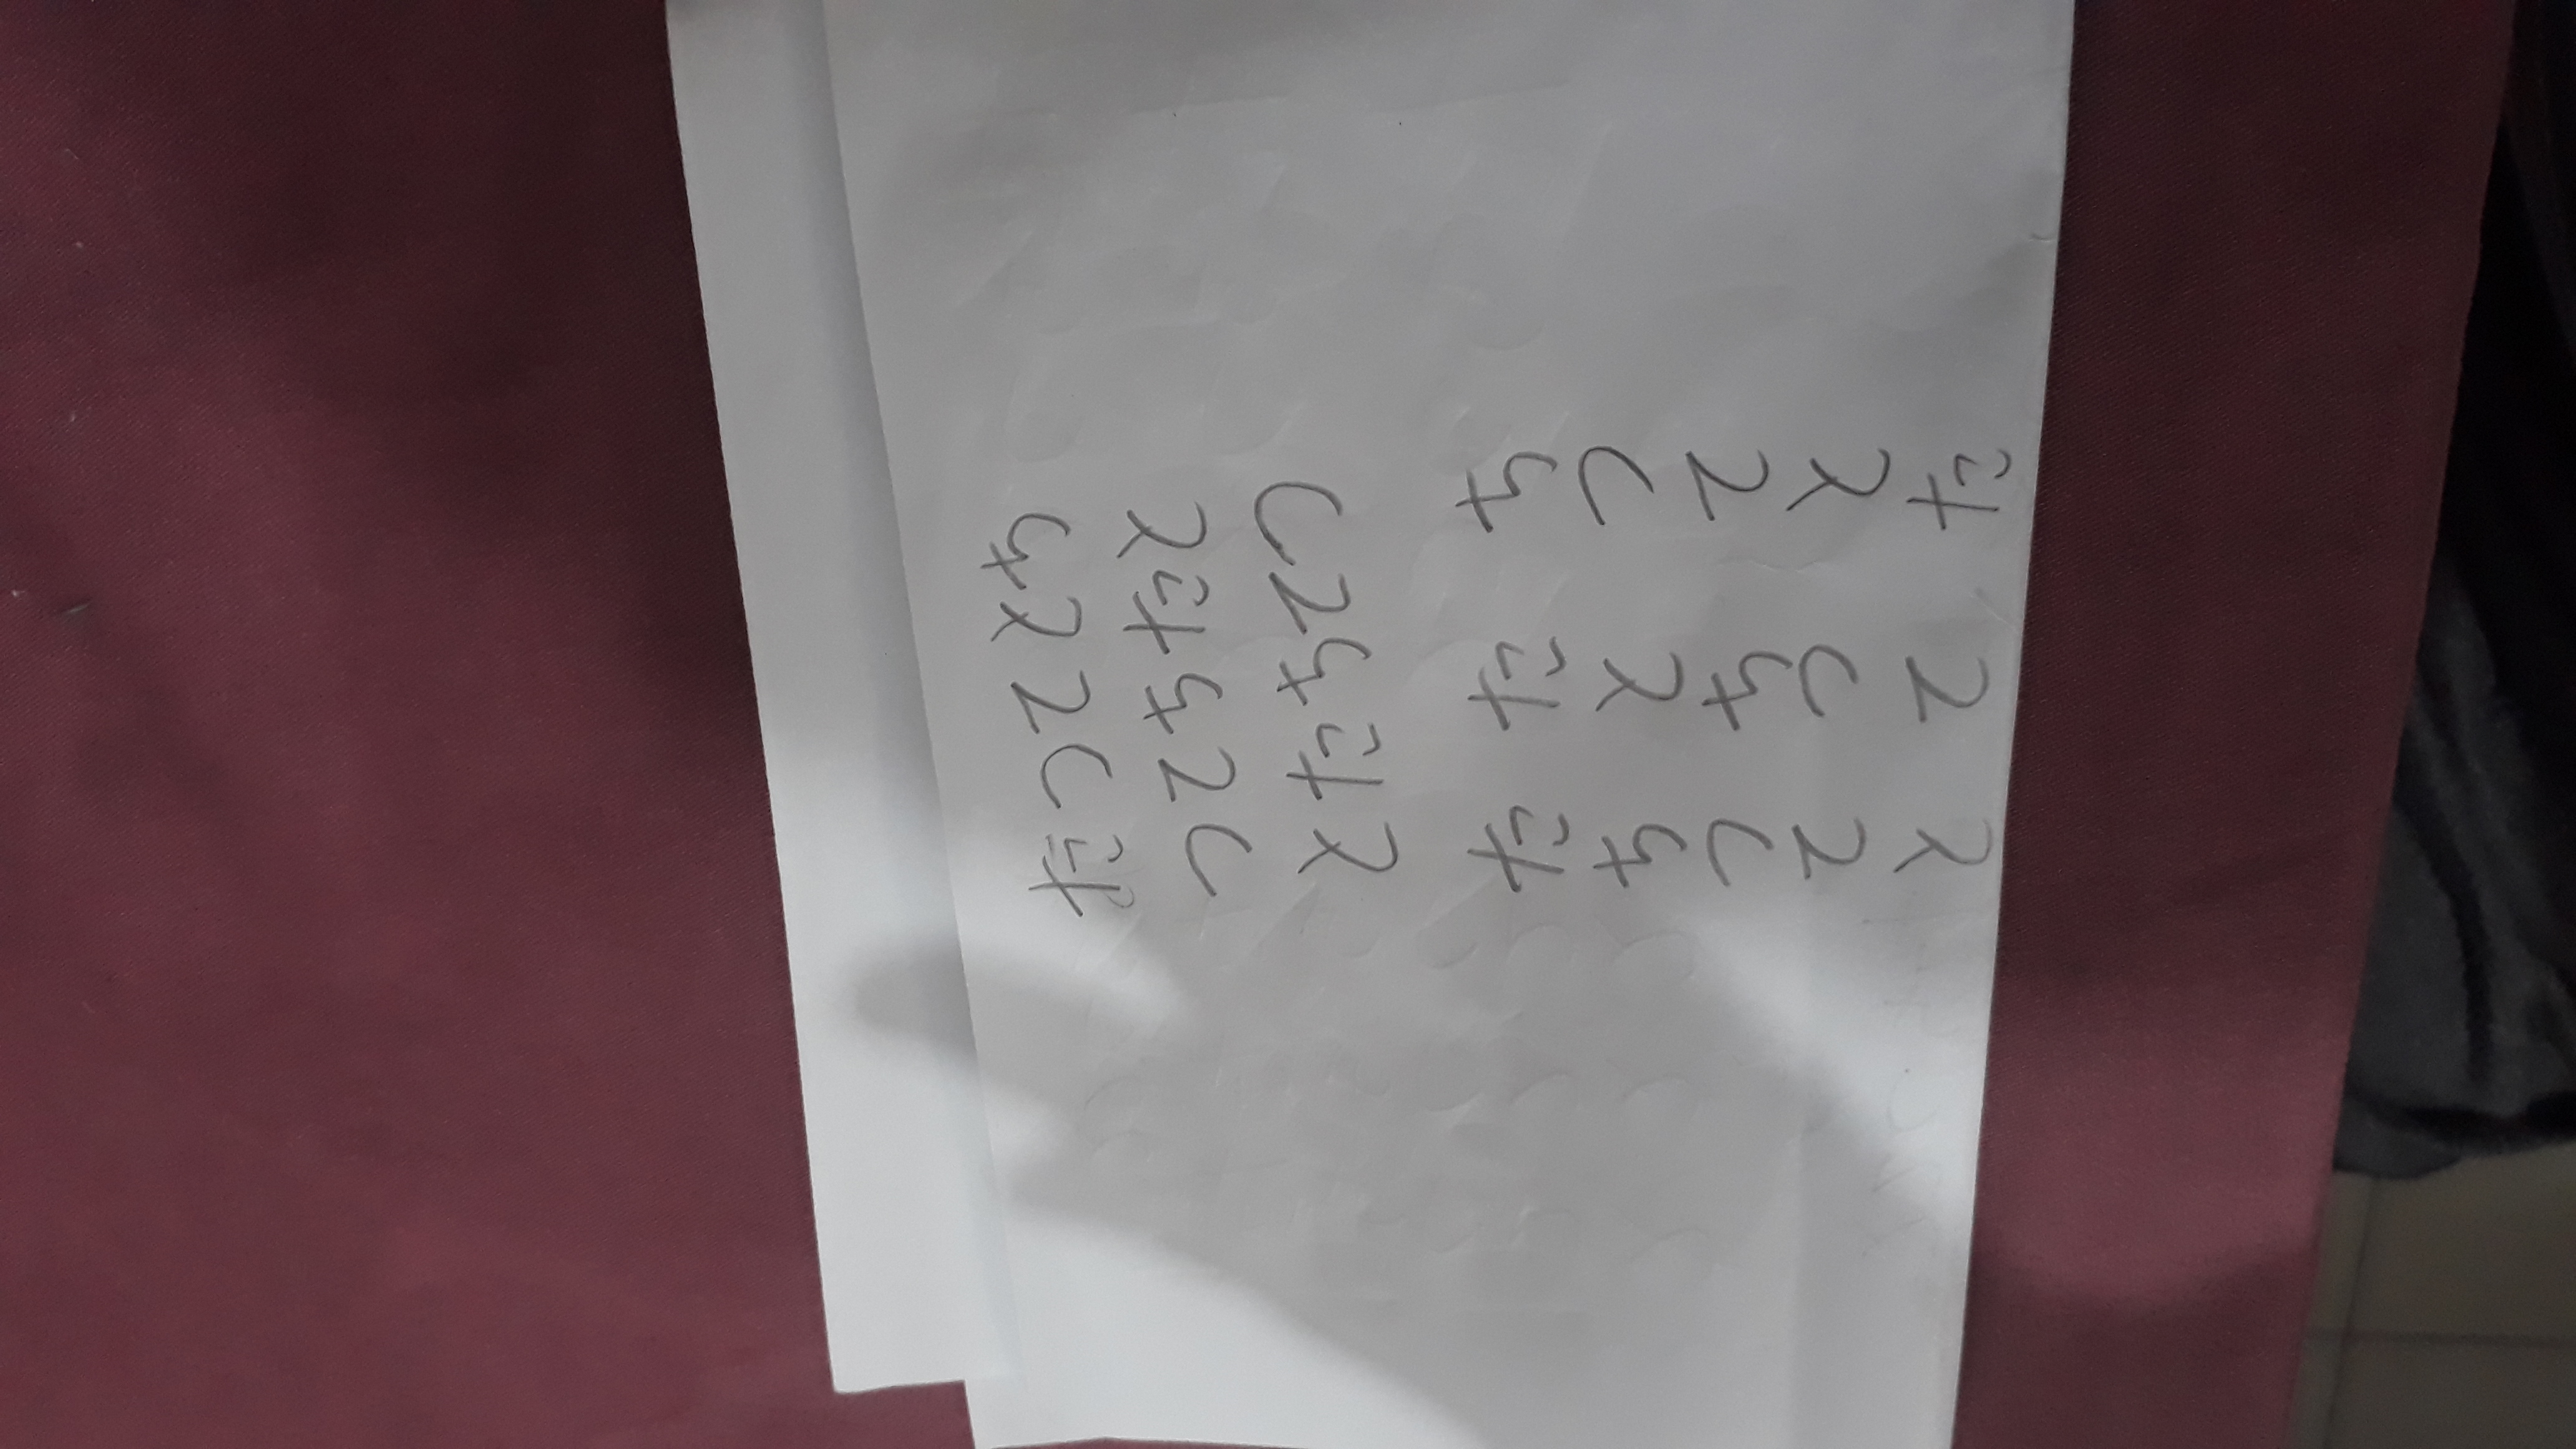 たつてとち
つてちたと
とたちてつ
ちつてとた
たとちつて
たちつてと